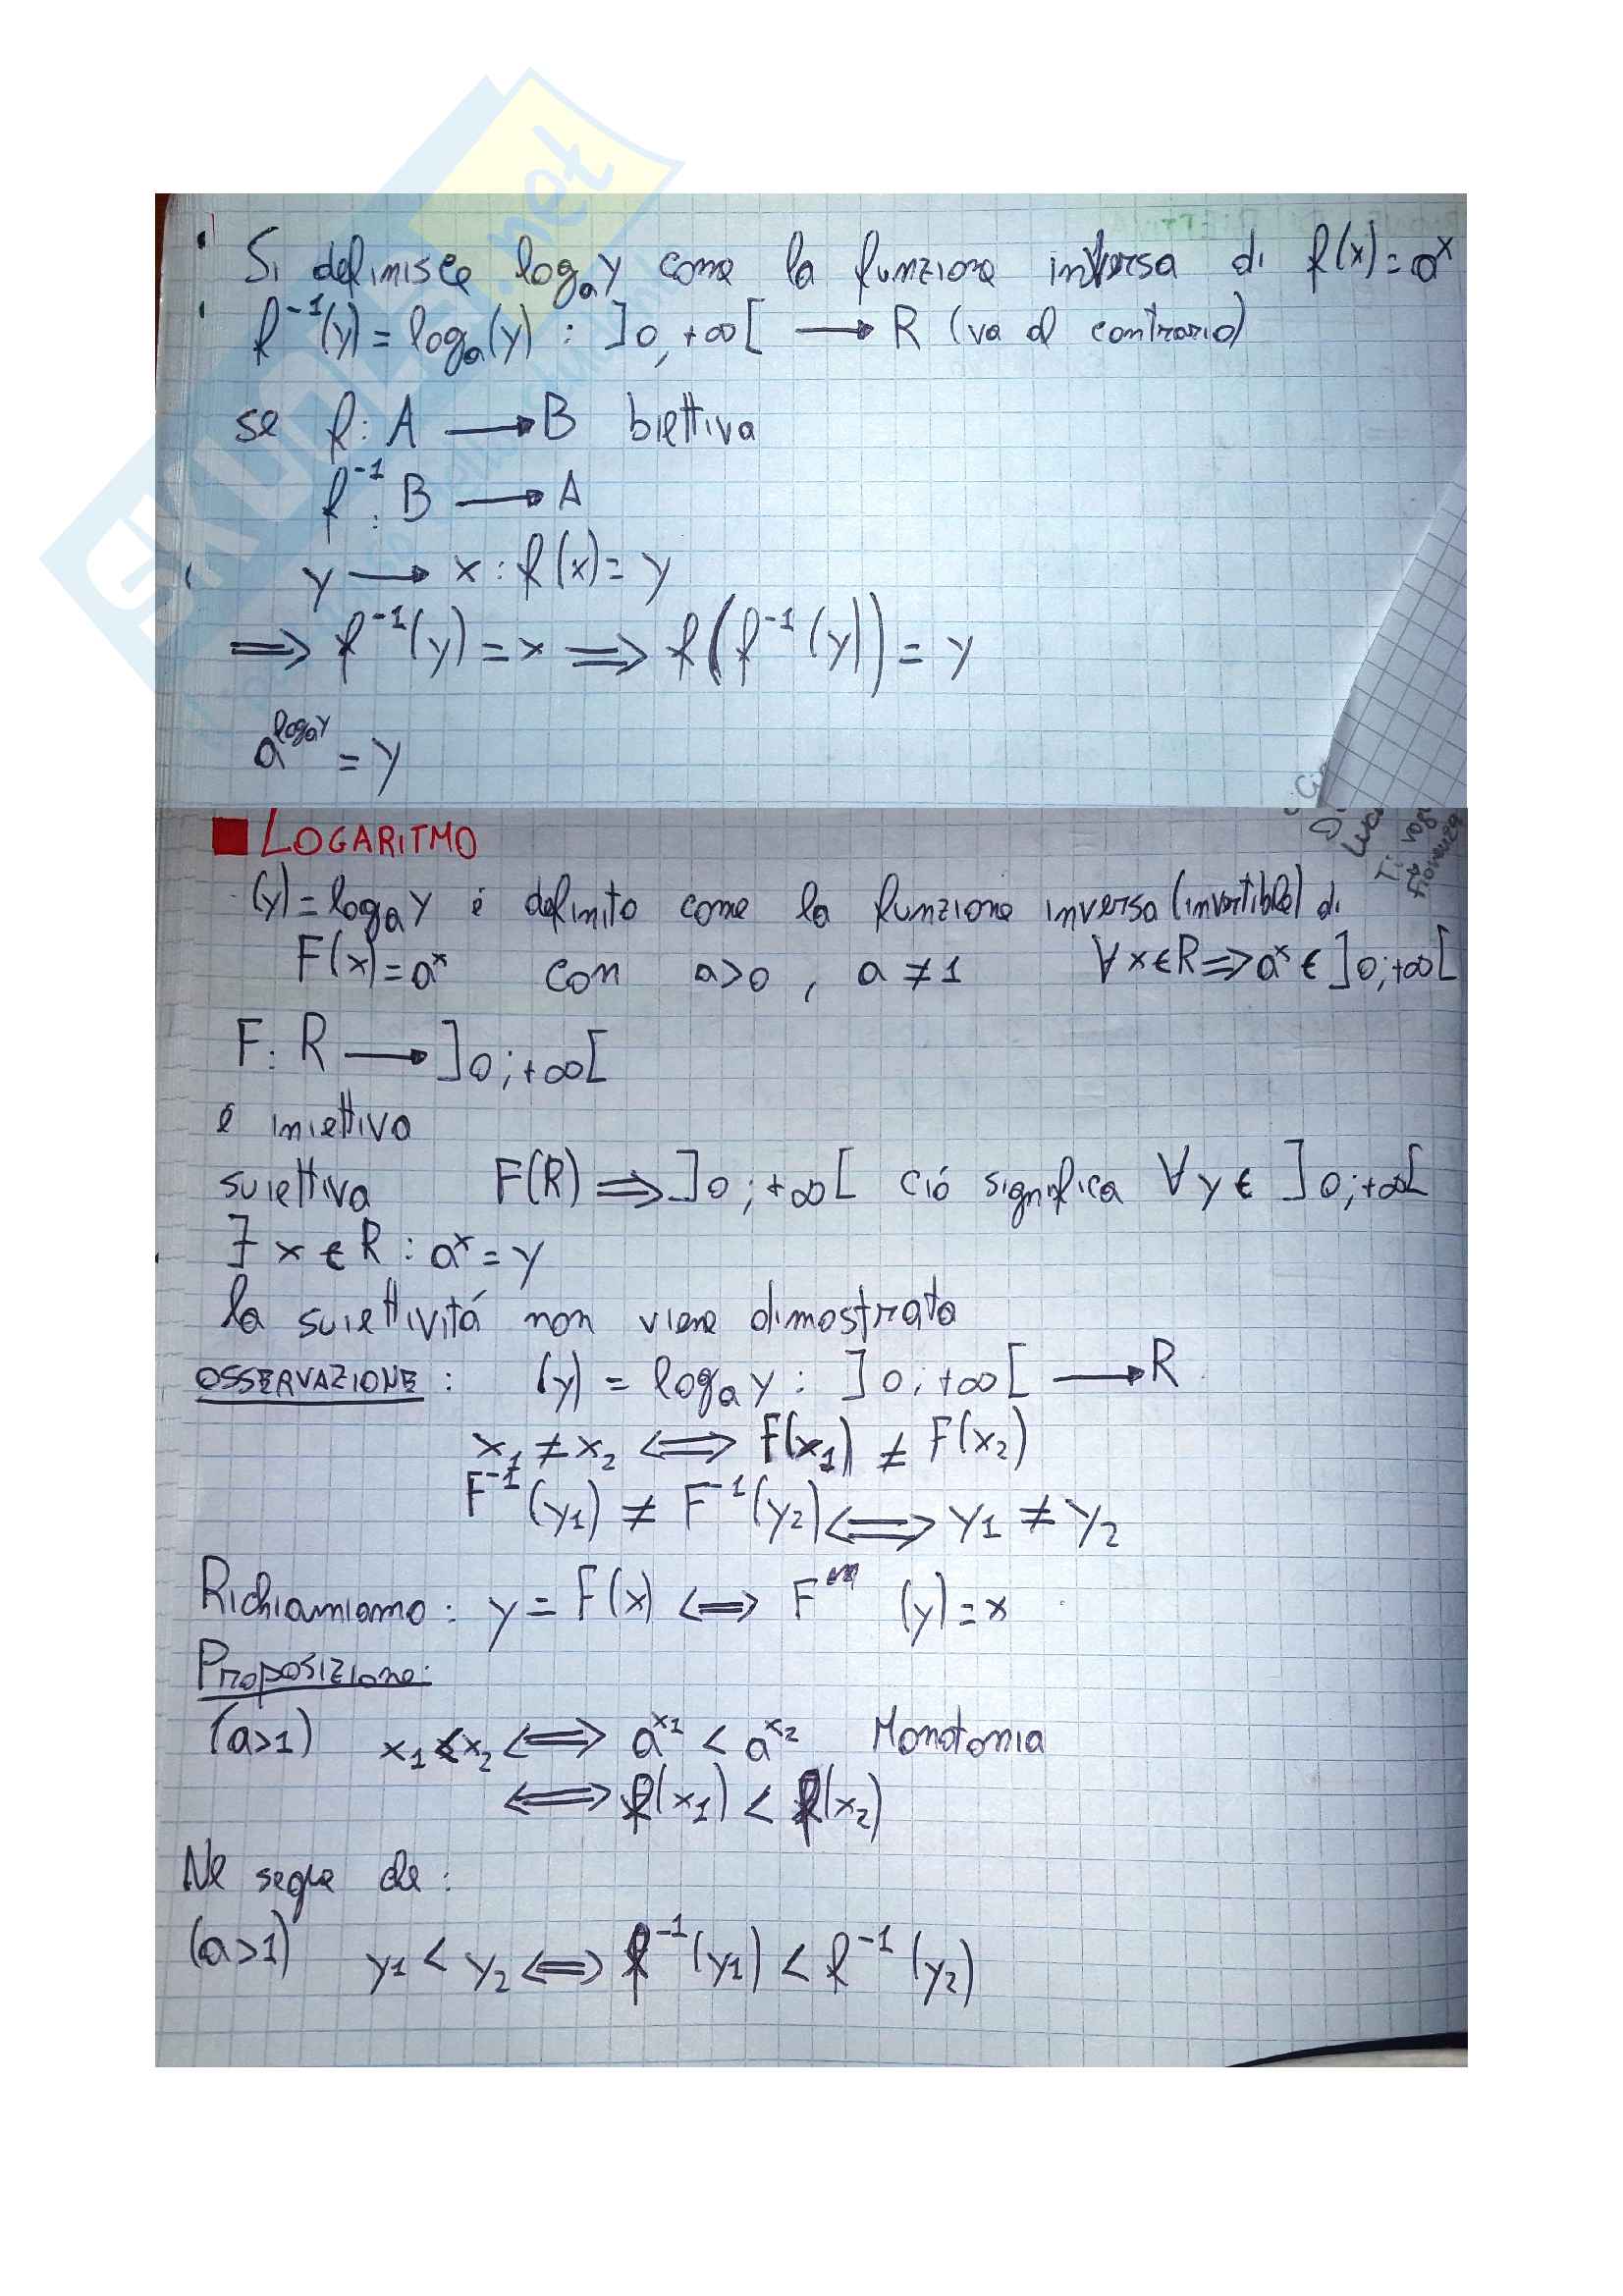 Si definisce logₐy come la funzione inversa di f(x)=aˣ
f⁻¹(y)=logₐ(y) : ]0,+∞[ ⟶ R (va al contrario)
se f: A ⟶ B biettiva
f⁻¹: B ⟶ A
y ⟶ x : f(x)= y
⟹ f⁻¹(y) = x ⟹ f(f⁻¹(y)) = y
a^logₐy = y
LOGARITMO
(y)=logₐy é definito come la funzione inversa (invertibile) di
F(x)=aˣ con a>0 , a ≠ 1 ∀x∈R⟹aˣ∈]0;+∞[
F: R ⟶ ]0;+∞[
é iniettiva
suiettiva F(R) ⟹ ]0;+∞[ ció significa ∀y∈ ]0;+∞[
∃ x ∈ R : aˣ = y
la suiettivitá non viene dimostrata
OSSERVAZIONE : (y) = logₐy : ]0;+∞[ ⟶ R
x₁ ≠ x₂ ⟺ F(x₁) ≠ F(x₂)
F⁻¹(y₁) ≠ F⁻¹(y₂) ⟺ y₁ ≠ y₂
Richiamiamo : y = F(x) ⟺ F (y)=x
Proposizione:
(a>1) x₁<x₂ ⟺ aˣ¹ < aˣ² Monotonia
⟺ f(x₁) < f(x₂)
Ne segue che :
(a>1) y₁ < y₂ ⟺ f⁻¹(y₁) < f⁻¹(y₂)
SKUOLA.net
Ti